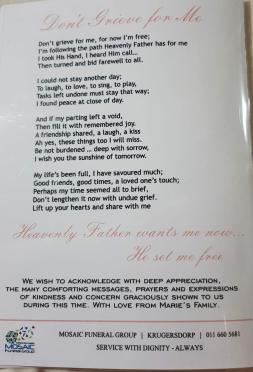 Don't Grieve for Me
Don't grieve for me, for now I'm free;
I'm following the path Heavenly Father has for me
I took His Hand, I heard Him call...
Then turned and bid farewell to all.
I could not stay another day;
To laugh, to love, to sing, to play,
Tasks left undone must stay that way;
I found peace at close of day.
And if my parting left a void,
Then fill it with remembered joy.
A friendship shared, a laugh, a kiss
Ah yes, these things too I will miss.
Be not burdened ... deep with sorrow,
I wish you the sunshine of tomorrow.
My life's been full, I have savoured much;
Good friends, good times, a loved one's touch;
Perhaps my time seemed all to brief,
Don't lengthen it now with undue grief.
Lift up your hearts and share with me
Heavenly Father wants me now...
He set me free
WE WISH TO ACKNOWLEDGE WITH DEEP APPRECIATION,
THE MANY COMFORTING MESSAGES, PRAYERS AND EXPRESSIONS
OF KINDNESS AND CONCERN GRACIOUSLY SHOWN TO US
DURING THIS TIME. WITH LOVE FROM MARIE'S FAMILY.
MOSAIC FUNERAL GROUP | KRUGERSDORP | 011 660 5681
SERVICE WITH DIGNITY - ALWAYS
MOSAIC
Funeral Group